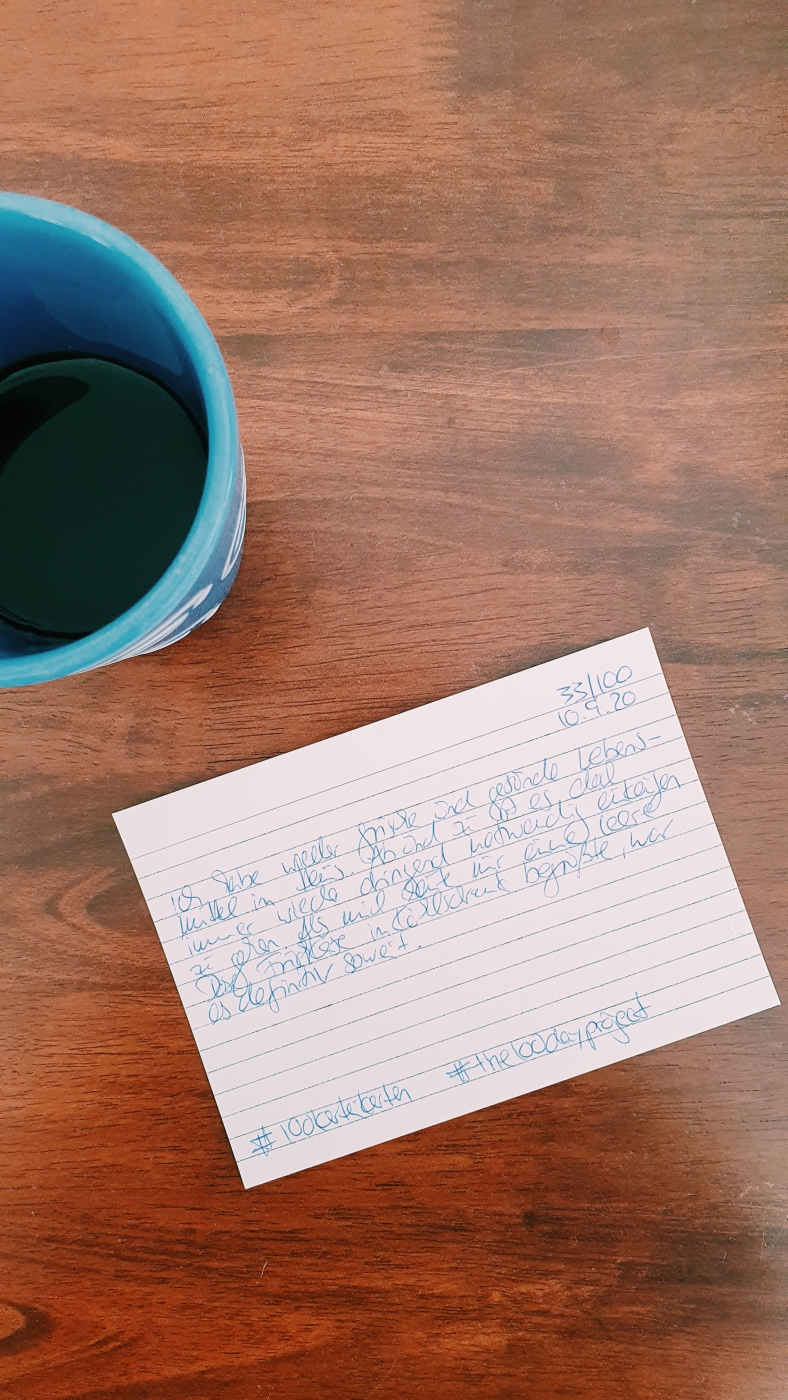 33/100
10.9.20
Ich habe wieder frische und gesunde Lebens-
mittel im Haus. Ab und zu ist es doch
immer wieder dringend notwendig einkaufen
zu gehen. Als mich heute nur eine leere
Dose im Kühlschrank begrüßte, war
es definitiv soweit.
#100karteikarten #the100dayproject